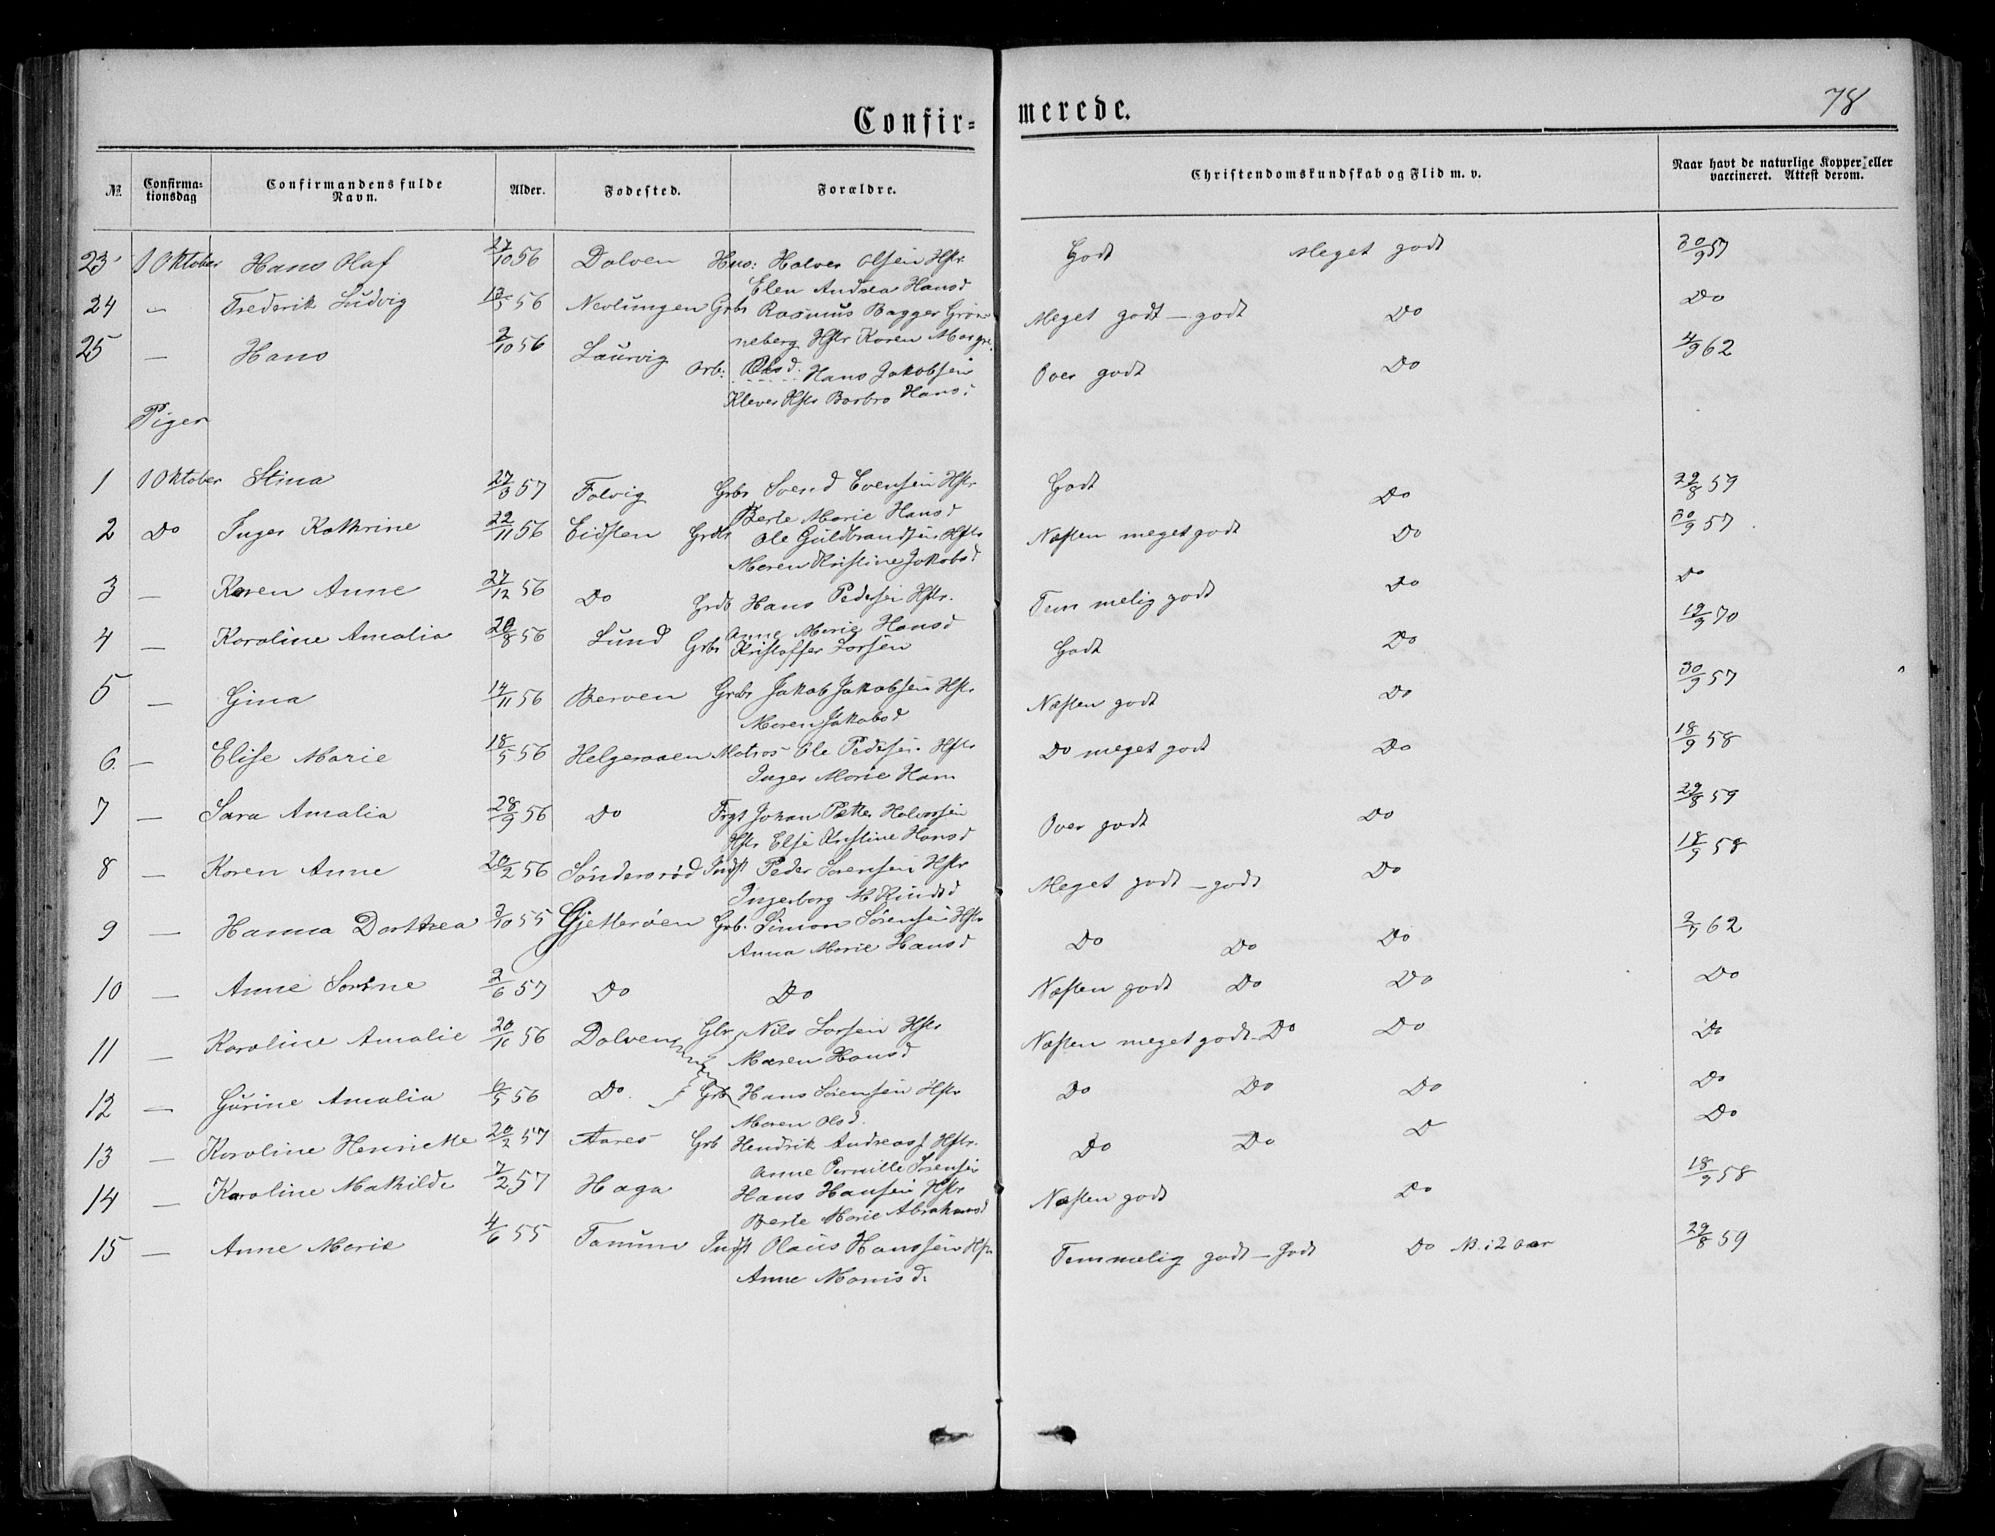 Confir-
merede.
78
№
Confirma-
tionsdag
Confirmandens fulde
Navn.
Alder.
Fødested.
Forældre.
Christendomskundskab og Flid m. v.
Naar havt de naturlige Kopper eller
vaccineret. Attest derom.
23 1 Oktober Hans Olaf 27/10 56 Dolven Hus: Halvor Olsen Hstr Godt Meget godt 30/9 57
Elen Andrea Hansd
24 — Frederik Ludvig 13/5 56 Nevlungen Grbr Rasmus Bagger Grøn Meget godt – godt Do Do
neberg Hstr Karen Margr.
25 — Hans 2/10 56 Laurvig Arb: Olsd. Hans Jakobsen Over godt Do 4/9 62
Klever Hstr Barbro Hans:
Piger
1 1 Oktober Stina 27/3 57 Folvig Grbr Svend Evensen Hstr Godt Do 29/8 59
Berte Marie Hansd
2 Do Inger Kathrine 22/11 56 Eidsten Grdbr Ole Guldbrandsen Hstr Næsten meget godt Do 30/9 57
Maren Kristine Jakobsd
3 — Karen Anne 27/12 56 Do Grdb Hans Pedersen Hstr. Temmelig godt Do Do
Anne Marie Hansd
4 — Karoline Amalia 20/8 56 Lund Grbr Kristoffer Larsen Godt Do 19/9 70
5 — Gina 14/11 56 Berven Grbr Jakob Jakobsen Hstr Næsten godt Do 30/9 57
Maren Jakobsd
6. — Elise Marie 18/5 56 Helgeroaen Matros Ole Pedersen Hstr Do meget godt Do 18/9 58
Inger Marie Hans
7 — Sara Amalia 28/9 56 Do Frgt Johan Petter Halvorsen Over godt Do 29/8 59
Hstr Else Kristine Hansd
8 — Karen Anne 20/2 56 Søndersrød Indst Peder Sørensen Hstr Meget godt – godt Do 18/9 58
Ingerborg M Knudsd
9 — Hanna Dorthea 3/10 55 Gjetterøen Grb. Simon Sørensen Hstr Do Do Do 2/9 62
Anna Marie Hansd
10 — Anne Sorine 2/6 57 Do Do Næsten godt Do Do Do
11 — Karoline Amalie 20/10 56 Dolven Nils Larsen Hstr Næsten meget godt – Do Do Do
Maren Hansd
12 — Gurine Amalia 6/5 56 Do. Grb Hans Sørensen Hstr Do Do Do Do
Maren Olsd.
13 — Karoline Henriette 20/2 57 Aares Grb Hendrik Andreass Hstr. Do Do D Do
Anne Pernille Sørensen
14 — Karoline Mathilde 7/2 57 Haga Hans Hansen Hstr Næsten godt Do 18/9 58
Berte Marie Abrahamsd
15 — Anne Marie 4/6 55 Tanum Indst Olaus Hanssen Hstr Temmelig godt – Godt Do N. i 2 Aar 29/8 59
Anne Monisd.